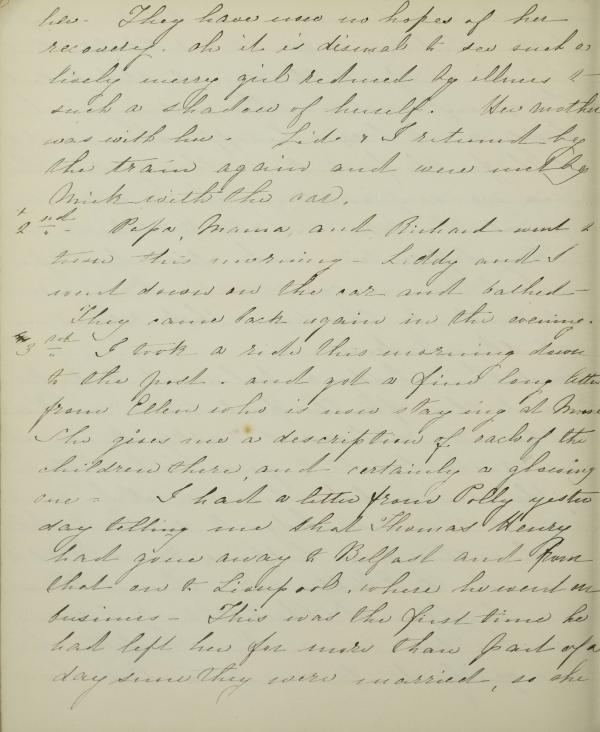 her. They have now no hopes of her
recovery. Oh it is dismal to see such a
lively merry girl reduced by illness to
such a shadow of herself. Her mother
was with her. Lide & I returned by
the train again and were met by
Mick with the car.
2nd Papa, Mama, and Richard went to
town this morning - Liddy and I
went down on the car and bathed -
They came back again in the evening.
3rd I took a ride this morning down
to the post. and got a fine long letter
from Ellen who is now staying at
She gives me a description of each of the
children there, and certainly a glowing
one = I had a letter from Polly yester
day telling me that Thomas Henry
had gone away to Belfast and from
that on to Liverpool, where he went on
business - This was the first time he
had left her for more than part of a
day since they were married, so she